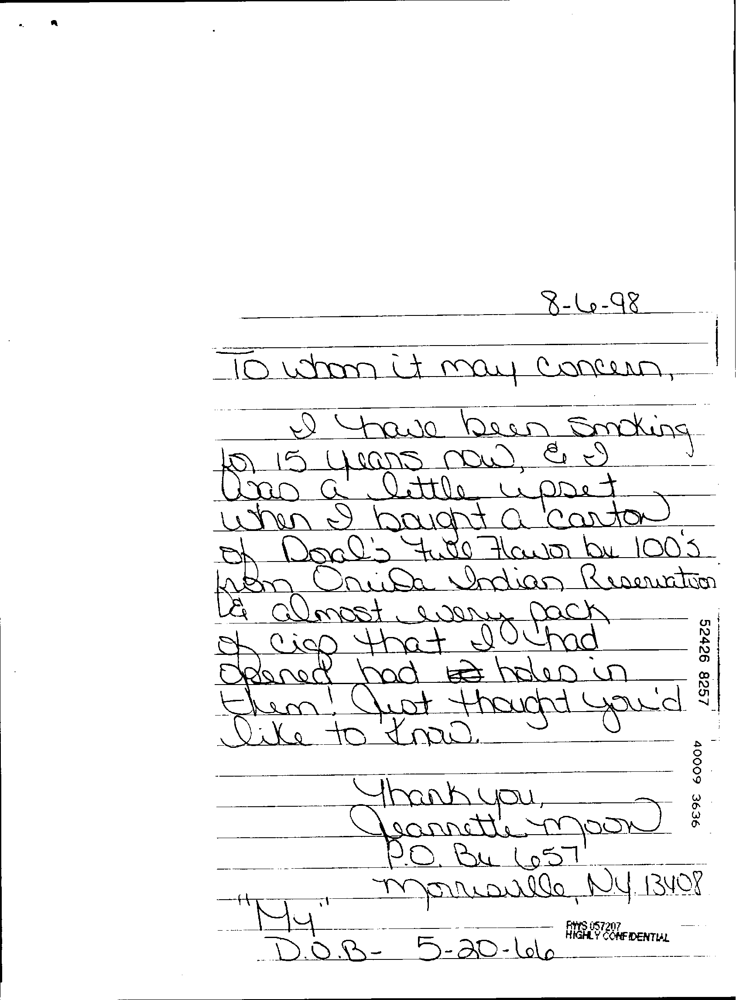 8-6-98
To whom it may concern,
I have been smoking
for 15 years now, & I
was a little upset
when I bought a carton
of Doral's Full Flavor bx 100's
from Oneida Indian Reservation
& almost every pack
of cigs that I had
opened had holes in
them! Just thought you'd
like to know.
Thank you,
Jeannette Moon
P.O. Bx 657
Morrisville, NY 13408
"My"
D.O.B- 5-20-66
RWS 057207
HIGHLY CONFIDENTIAL
52426 8257
40009 3636